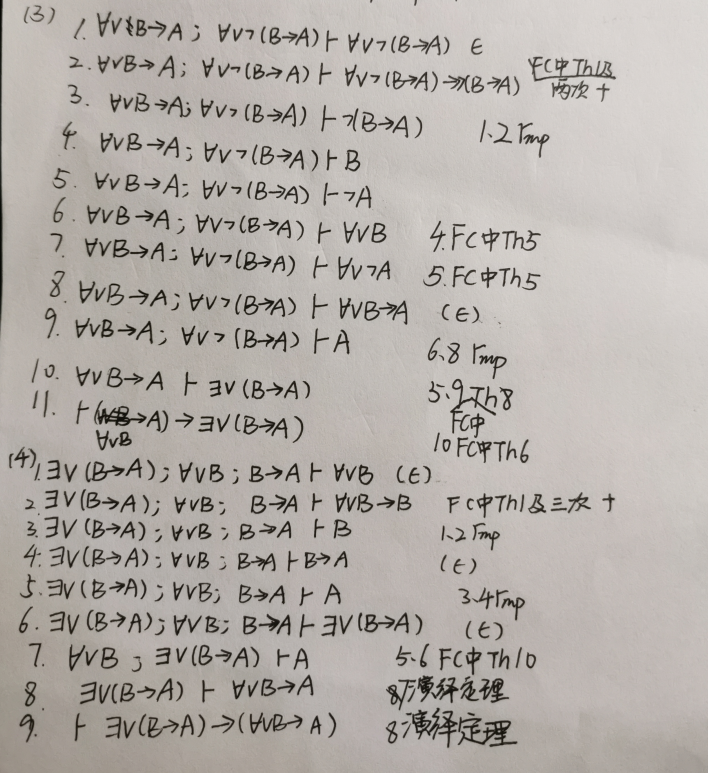 (3) 1. ∀vB→A; ∀v¬(B→A)⊢∀v¬(B→A) ∈
2. ∀vB→A; ∀v¬(B→A)⊢∀v¬(B→A)→¬(B→A) FC中Th1及两次+
3. ∀vB→A; ∀v¬(B→A)⊢¬(B→A) 1.2 rmp
4. ∀vB→A; ∀v¬(B→A)⊢B
5. ∀vB→A; ∀v¬(B→A)⊢¬A
6. ∀vB→A; ∀v¬(B→A)⊢∀vB 4.FC中Th5
7. ∀vB→A; ∀v¬(B→A)⊢∀v¬A 5.FC中Th5
8. ∀vB→A; ∀v¬(B→A)⊢∀vB→A (∈)
9. ∀vB→A; ∀v¬(B→A)⊢A 6.8 rmp
10. ∀vB→A⊢∃v(B→A) 5.9 Th8 FC中
11. ⊢(∀vB→A)→∃v(B→A) 10 FC中Th6
(4) 1. ∃v(B→A); ∀vB; B→A⊢∀vB (∈)
2. ∃v(B→A); ∀vB; B→A⊢∀vB→B FC中Th1及三次+
3. ∃v(B→A); ∀vB; B→A⊢B 1.2 rmp
4. ∃v(B→A); ∀vB; B→A⊢B→A (∈)
5. ∃v(B→A); ∀vB; B→A⊢A 3.4 rmp
6. ∃v(B→A); ∀vB; B→A⊢∃v(B→A) (∈)
7. ∀vB; ∃v(B→A)⊢A 5.6 FC中Th10
8. ∃v(B→A)⊢∀vB→A 7演绎定理
9. ⊢∃v(B→A)→(∀vB→A) 8演绎定理